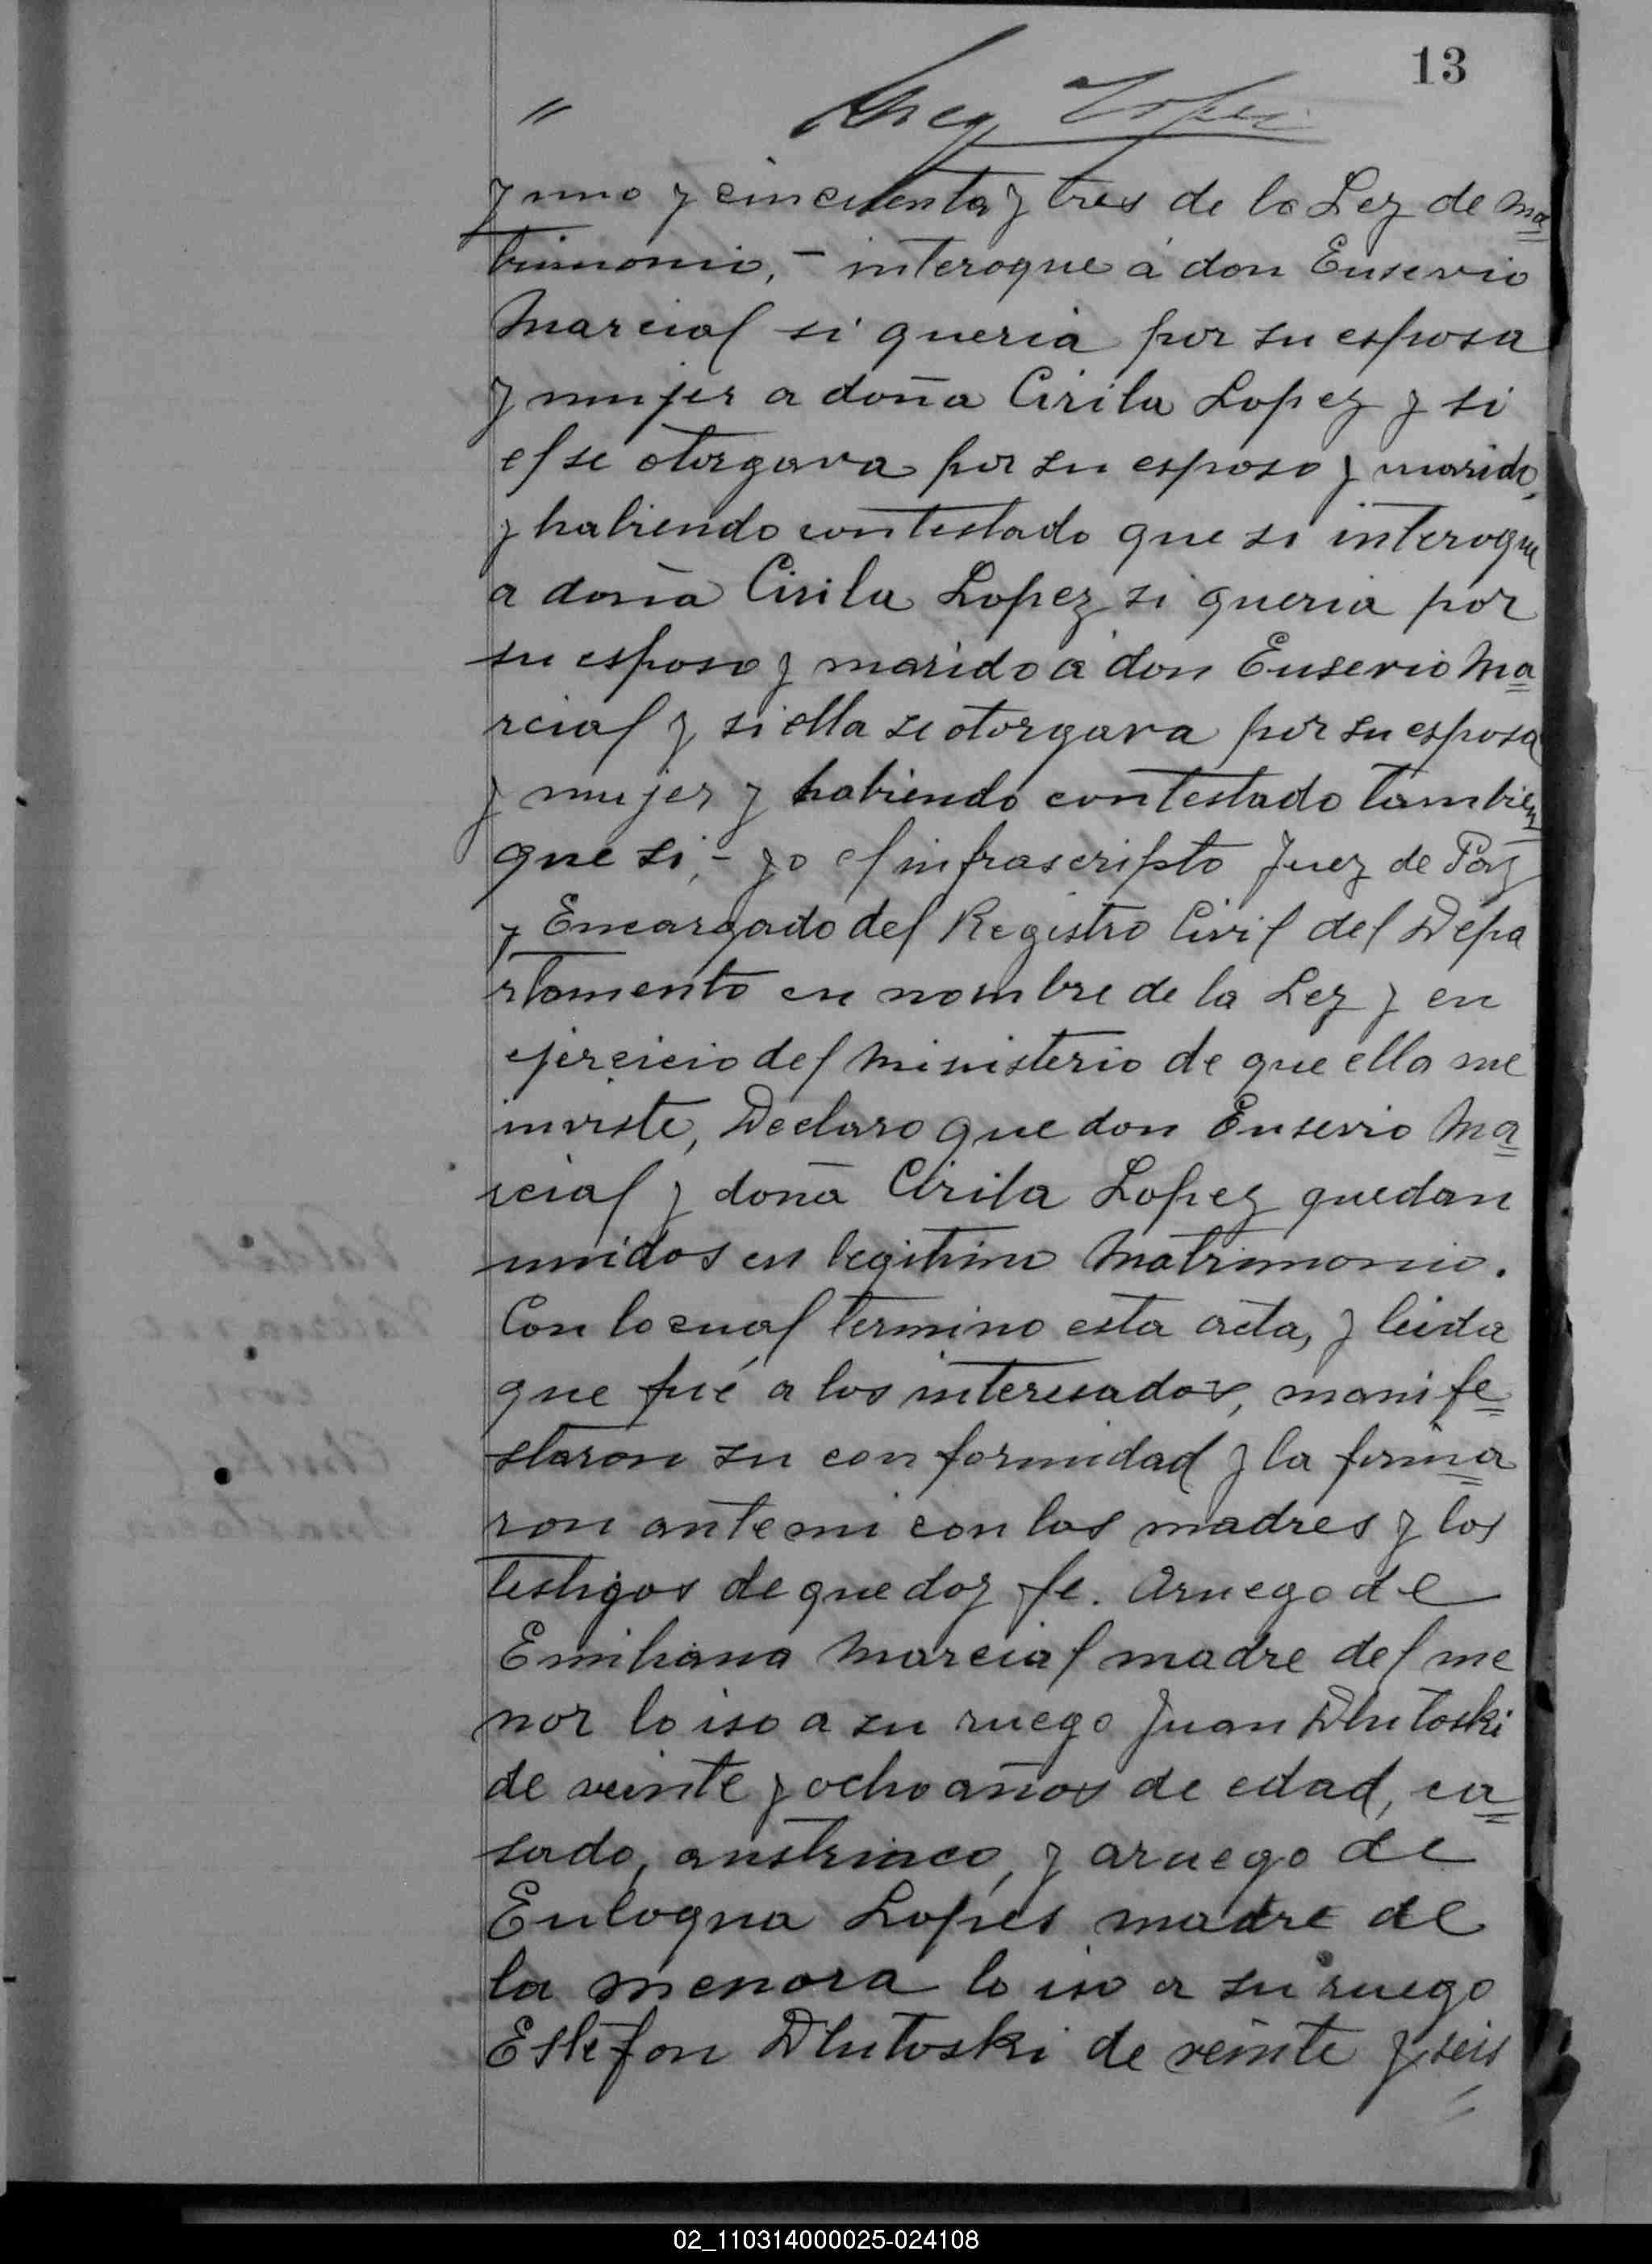 13
"
y uno y cincuenta y tres de la Ley de ma
trimonio,- interogue á don Eusevio
Marcial si queria por su esposa
y mujer a doña Cirila Lopez y si
el se otorgava por su esposo y marido,
y habiendo contestado que si interogue
a doña Cirila Lopez si queria por
su esposo y marido a don Eusevio Ma
rcial y si ella se otorgava por su esposa
y mujer y habiendo contestado tambien
que si,- yo el infrascripto Juez de Paz
y Encargado del Registro Civil del Depa
rtamento en nombre de la Ley y en
ejercicio del Ministerio de que ella me
inviste, Declaro que don Eusevio Ma
rcial y doña Cirila Lopez quedan
unidos en legitimo Matrimonio.
Con lo cual termino esta acta, y leida
que fué a los interesados, manife
staron su conformidad y la firma
ron ante mi con las madres y los
testigos de que doy fe. Aruego de
Emiliana Marcial madre del me
nor lo iso a su ruego Juan Dlutoski
de veinte y ocho años de edad, ca
sado, austriaco, y aruego de
Eulogna Lopes madre de
la menora lo iso a su ruego
Estefon Dlutoski de veinte y seis
"
02_110314000025-024108